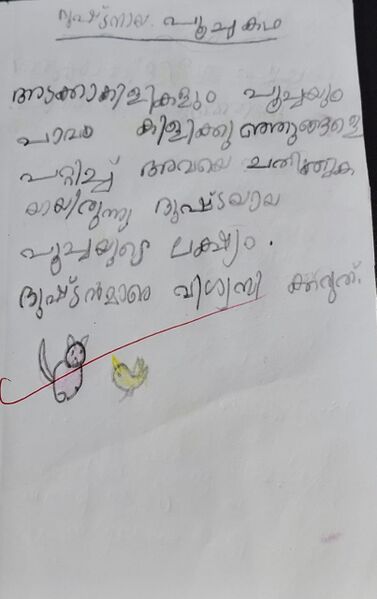 ദുഷ്ടനായ പൂച്ചകഥ
അടക്കാകിളികളും പൂച്ചയും
പാവം കിളിക്കുഞ്ഞുങ്ങളെ
പറ്റിച്ച് അവയെ ചതിക്കുക
യായിരുന്നു ദുഷ്ടയായ
പൂച്ചയുടെ ലക്ഷ്യം .
ദുഷ്ടൻമാരെ വിശ്വസി ക്കരുത്.